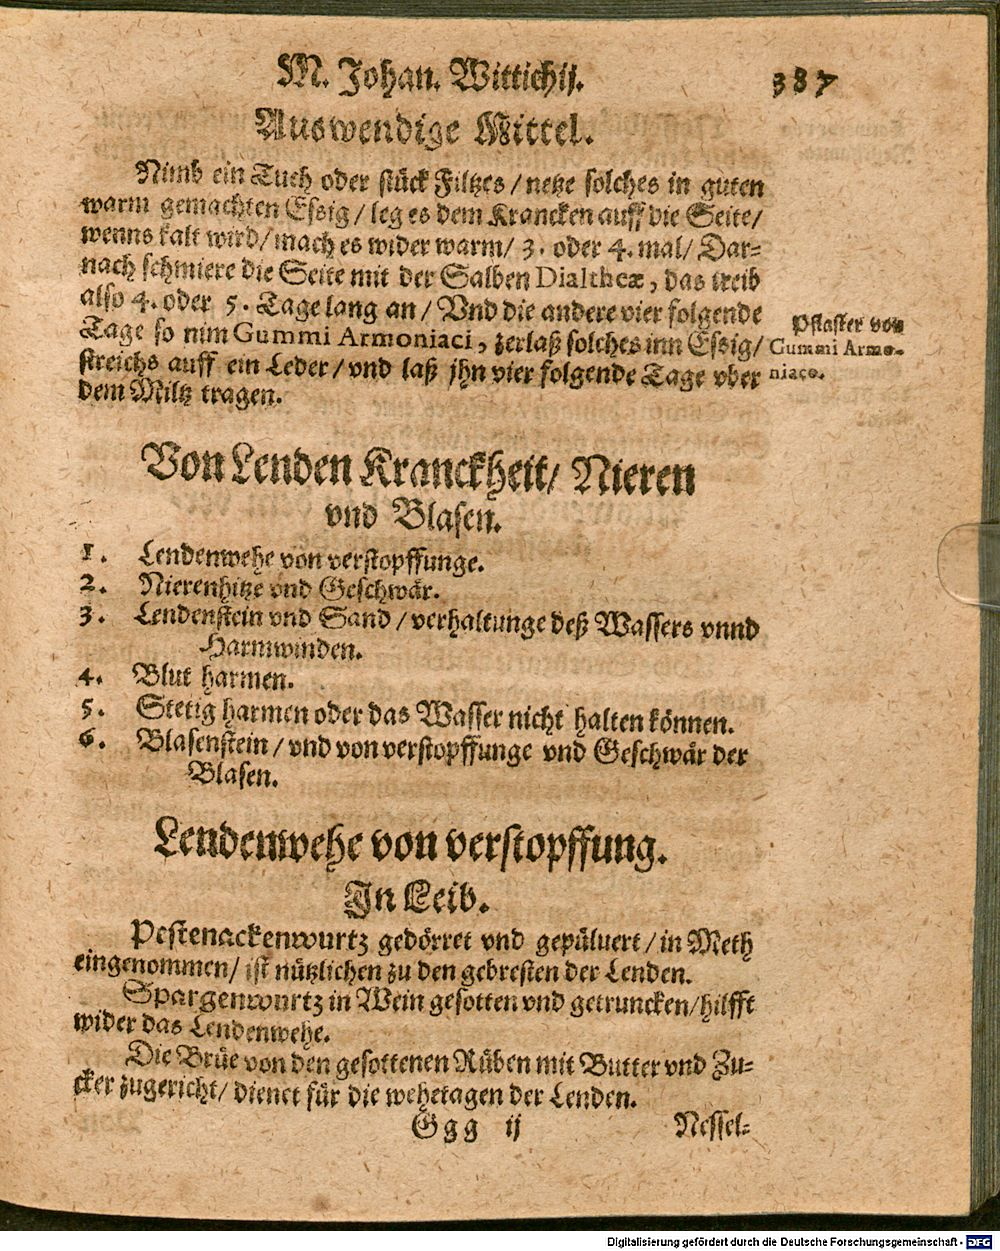 M. Johan. Wittichij. 387
Auswendige Mittel.
Nimb ein Tuch oder stück Filtzes / netze solches in guten
warm gemachten Essig / leg es dem Krancken auff die Seite /
wenns kalt wird / mach es wider warm / 3. oder 4. mal / Dar-
nach schmiere die Seite mit der Salben Dialtheæ, das treib
also 4. oder 5. Tage lang an / Vnd die andere vier folgende
Tage so nim Gummi Armoniaci, zerlaß solches inn Essig /
streichs auff ein Leder / vnd laß jhn vier folgende Tage vber
dem Miltz tragen.
Pflaster von
Gummi Armo-
niaco.
Von Lenden Kranckheit / Nieren
vnd Blasen.
1. Lendenwehe von verstopffunge.
2. Nierenhitze vnd Geschwär.
3. Lendenstein vnd Sand / verhaltunge deß Wassers vnnd
Harmwinden.
4. Blut harmen.
5. Stetig harmen oder das Wasser nicht halten können.
6. Blasenstein / vnd von verstopffunge vnd Geschwär der
Blasen.
Lendenwehe von verstopffung.
In Leib.
Pestenackenwurtz gedörret vnd gepüluert / in Meth
eingenommen / ist nützlichen zu den gebresten der Lenden.
Spargenwurtz in Wein gesotten vnd getruncken / hilfft
wider das Lendenwehe.
Die Brüe von den gesottenen Rüben mit Butter vnd Zu-
cker zugericht / dienet für die wehetagen der Lenden.
Ggg ij Nessel-
Digitalisierung gefördert durch die Deutsche Forschungsgemeinschaft - DFG